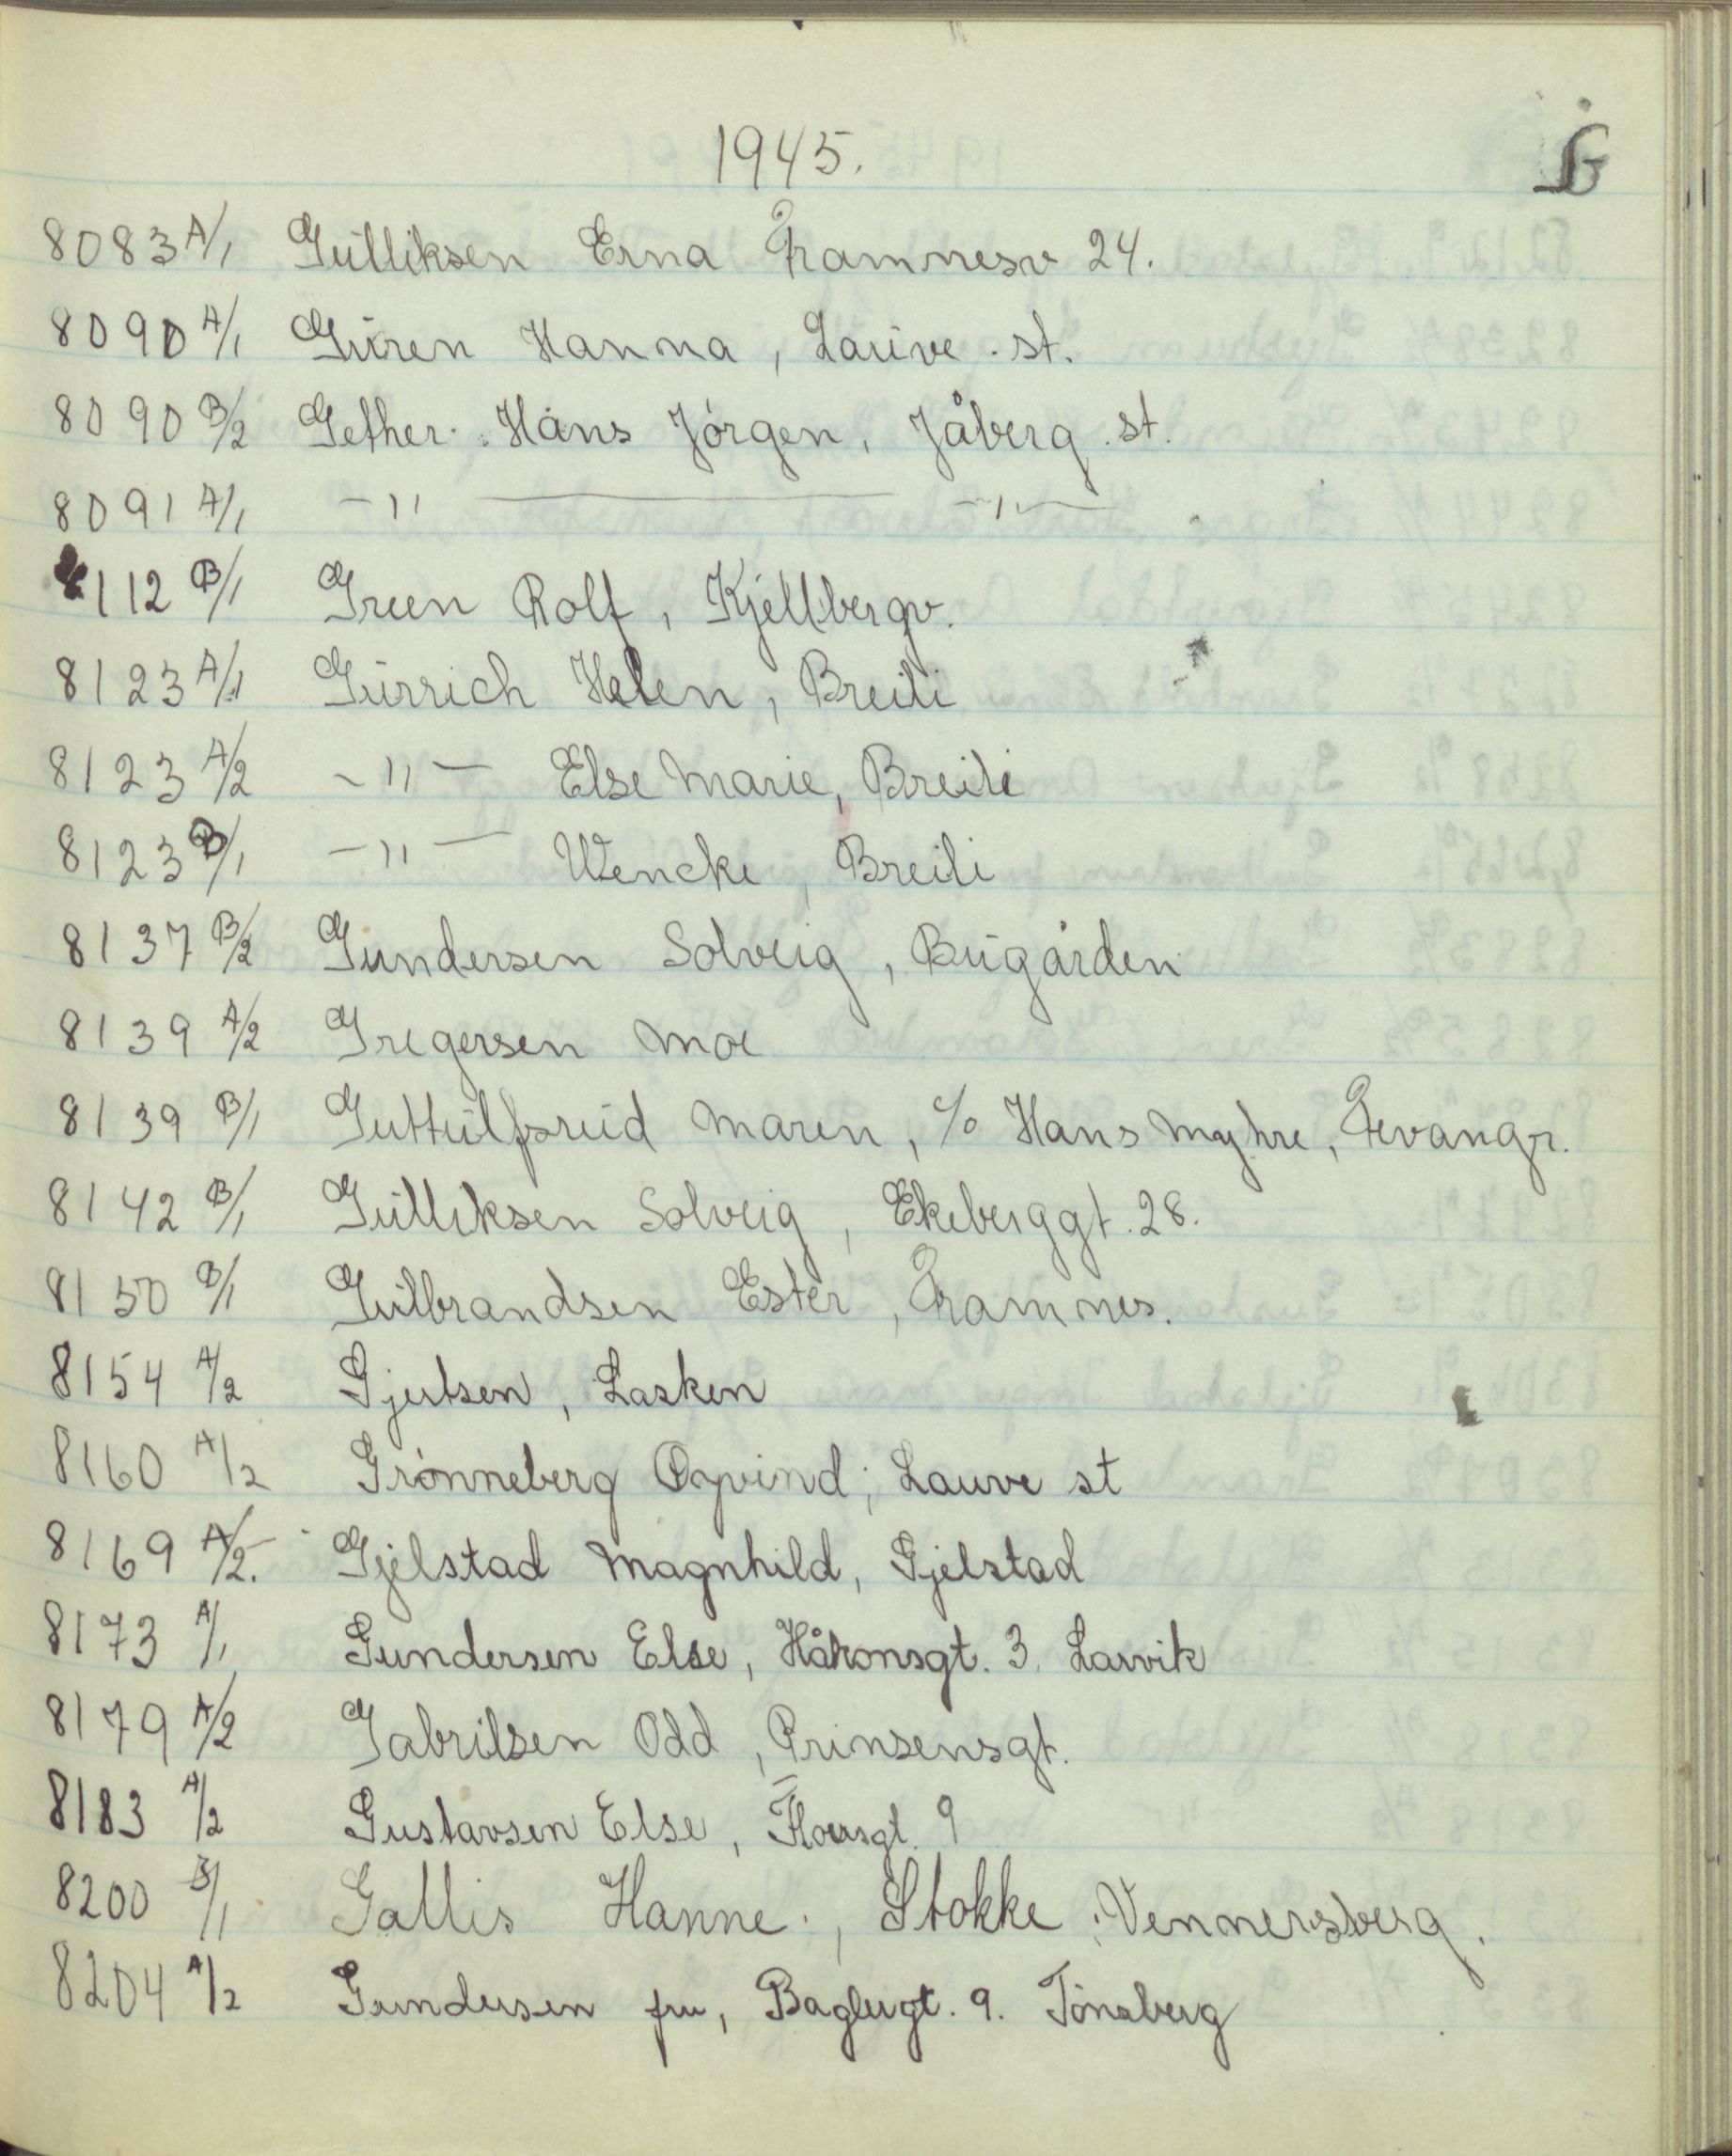 1945.
G
8083 A/1 Gulliksen Erna Framnesv 24.
8090 A/1 Guren Hanna, Lauve. st.
8090 B/2 Gether. Hans Jörgen, Jåberg. st.
8091 A/1 -"- -"-
8112 B/1 Green Rolf, Kjellbergv.
8123 A/1 Gürrich Helen, Breili
8123 A/2 -"- Else Marie, Breili
8123 B/1 -"- Wencke, Breili
8137 B/2 Gundersen Solveig, Bugården
8139 A/2 Gregersen Moe
8139 B/1 Guttulfsrud Maren, c/o Hans Myhre, Fevangr.
8142 B/1 Gulliksen Solveig, Ekeberggt. 28.
8150 B/1 Gulbrandsen Ester, Framnes.
8154 A/2 Gjertsen, Lasken
8160 A/2 Grönneberg Øyvind; Lauve st
8169 A/2. Gjelstad Magnhild, Gjelstad
8173 A/1 Gundersen Else, Håkonsgt. 3. Larvik
8179 A/2 Gabrilsen Odd, Prinsensgt.
8183 A/2 Gustavsen Else, 9
8200 B/1 Gallis Hanne., Stokke, Vennersberg.
8204 A/2 Gundersen fru, Baglergt. 9. Tönsberg